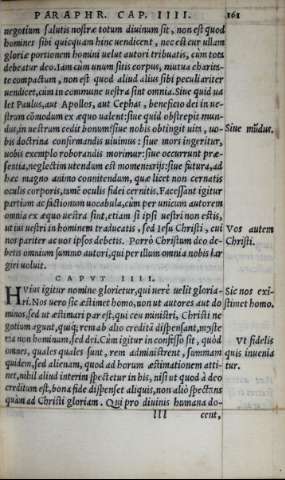 PARAPHR. CAP. IIII. 161
negotium salutis nostræ totum diuinum sit, non est quod
homines sibi quicquam hinc uendicent, nec est cur ullam
gloriæ portionem homini uelut autori tribuatis, cùm totū
debeatur deo. Iam cùm unum sitis corpus, mutua charita-
te compactum, non est quod aliud alius sibi peculiariter
uendicet, cùm in commune uestra sint omnia. Siue quid ua
let Paulus, aut Apollos, aut Cephas, beneficio dei in ue-
strum cōmodum ex æquo ualent: siue quid obstrepit mun-
dus, in uestrum cedit bonum: siue nobis obtingit uita, uo-
bis doctrina confirmandis uiuimus: siue mors ingeritur,
uobis exemplo roborandis morimur: siue occurrunt præ-
sentia, neglectim utendum est momentariis: siue futura, ad
hæc magno animo connitendum, quæ licet non cernatis
oculis corporis, tamē oculis fidei cernitis. Facessant igitur
partium ac factionum uocabula, cùm per unicum autorem
omnia ex æquo uestra sint, etiam si ipsi uestri non estis,
ut iui uestri in hominem traducatis, sed Iesu Christi, cui
nos pariter ac uos ipsos debetis. Porrò Christum deo de-
betis omnium summo autori, qui per illum omnia nobis lar
giri uoluit.
Siue mūdus.
Vos autem
Christi.
CAPVT IIII.
HVius igitur nomine glorietur, qui uerè uelit gloria-
ri. Nos uero sic æstimet homo, non ut autores aut do
minos, sed ut æstimari par est, qui ceu ministri, Christi ne
gotium agunt, quiq; rem ab alio creditā dispensant, myste
ria non hominum, sed dei. Cùm igitur in confesso sit, quòd
omnes, quales quales sunt, rem administrent, summam
quidem, sed alienam, quod ad horum æstimationem atti-
net, nihil aliud interim spectetur in his, nisi ut quod à deo
creditum est, bona fide dispenset aliquis, non aliò spectans
quàm ad Christi gloriam. Qui pro diuinis humana do-
Sic nos exi-
stimet homo.
Vt fidelis
quis inuenia
tur.
lll cent,